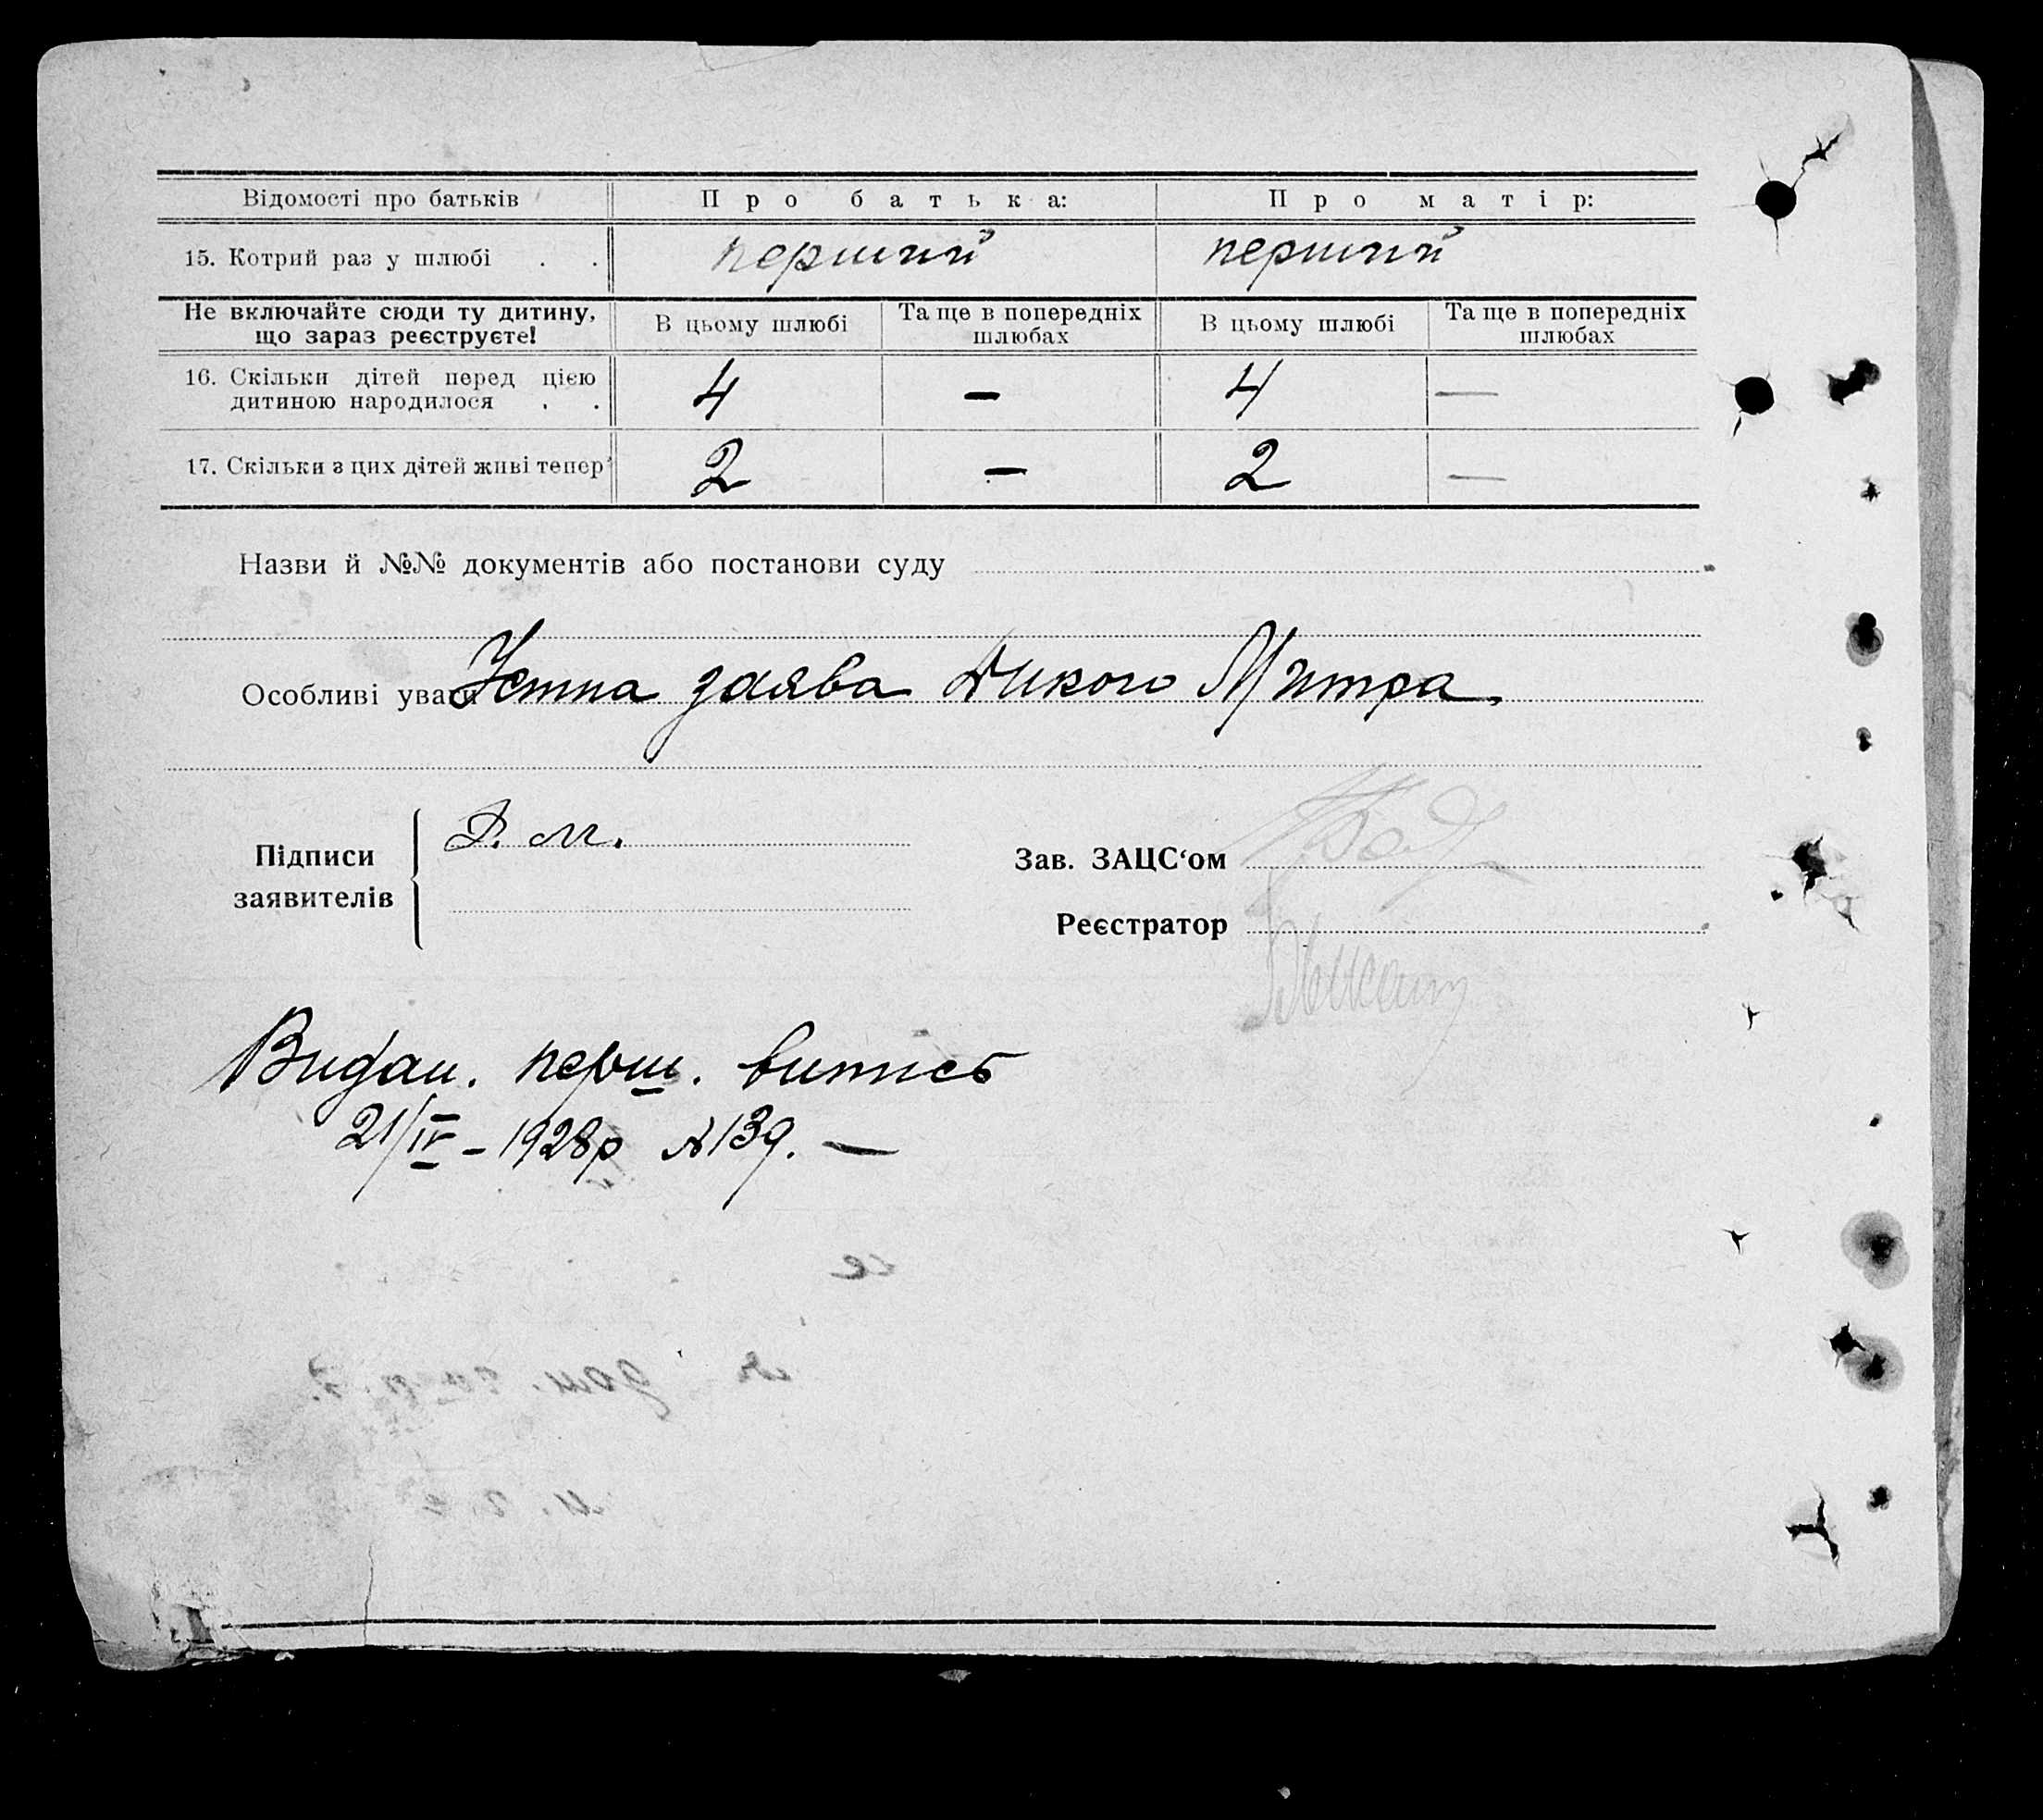 Відомості про батьків Про батька: Про матір:
15. Котрий раз у шлюбі . . перший перший
Не включайте сюди ту дитину, що зараз реєструєте! В цьому шлюбі Та ще в попередніх шлюбах В цьому шлюбі Та ще в попередніх шлюбах
16. Скільки дітей перед цією
дитиною народилося . . 4 — 4 —
17. Скільки з цих дітей живі тепер 2 — 2 —
Назви й №№ документів або постанови суду
Особливі уваги Устна заява Дикого Митра,
Підписи заявителів Д. М.
Зав. ЗАЦС‘ом
Реєстратор
Видан. перш. випись
21/IV – 1928р №139. —